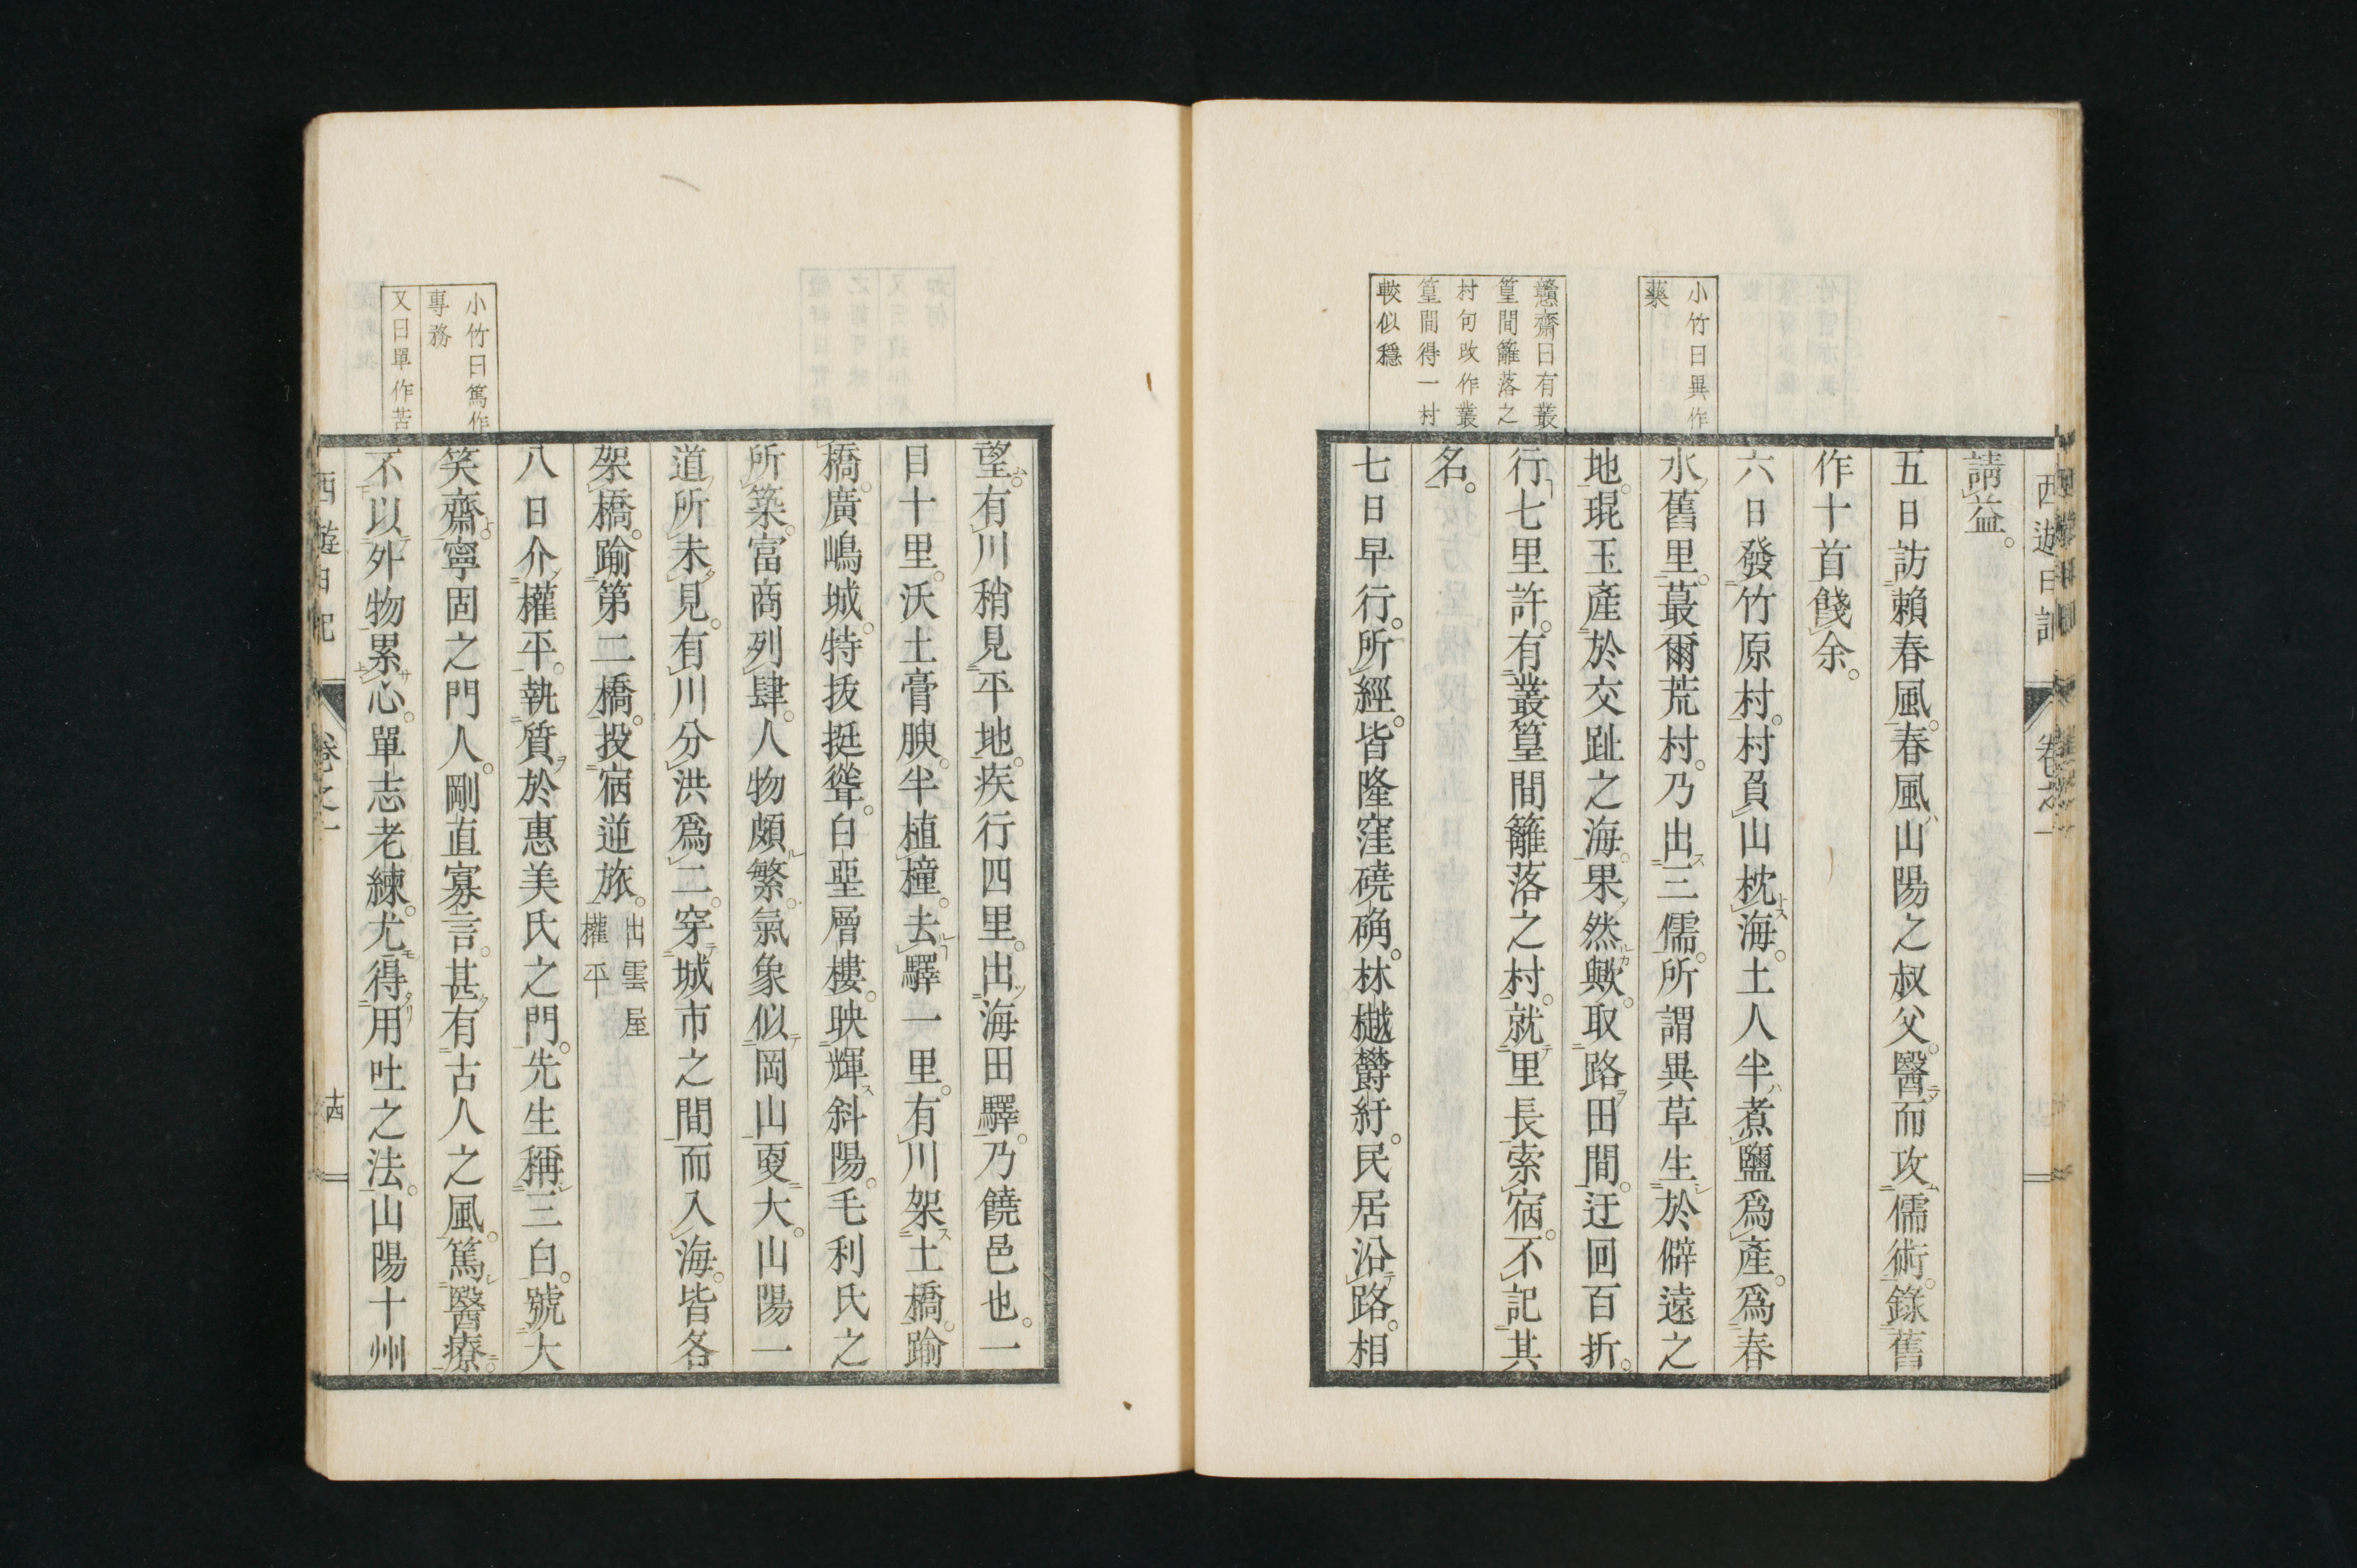 西遊日記
卷之一
小竹曰異作
藥
戇齋曰有叢
篁間籬落之
村句改作叢
篁間得一村
較似穩
請益。
五日訪賴春風。春風山陽之叔父。醫而攻儒術。錄舊
作十首餞余。
六日發竹原村。村負山枕海。土人半煮鹽爲產。爲春
水舊里。蕞爾荒村。乃出三儒。所謂異草生於僻遠之
地。琨玉產於交趾之海。果然歟。取路田間。迂回百折。
行七里許。有叢篁間籬落之村。就里長索宿。不記其
名。
七日早行。所經。皆隆窪磽确。林樾欝紆。民居沿路。相
小竹曰篤作
專務
又曰單作苦
望。有川稍見平地。疾行四里。出海田驛。乃饒邑也。一
目十里。沃土膏腴。半植橦。去驛一里。有川架土橋。踰
橋。廣嶋城。特拔挺聳。白堊層樓。映輝斜陽。毛利氏之
所築。富商列肆。人物頗繁。氣象似岡山更大。山陽一
道所未見。有川分洪爲二。穿城市之間而入海。皆各
架橋。踰第二橋。投宿逆旅。出雲屋
權平
八日介權平。執質於惠美氏之門。先生稱三白。號大
笑齋。寧固之門人。剛直寡言。甚有古人之風。篤醫療。
不以外物累心。單志老練。尤得用吐之法。山陽十州
西遊日記
卷之一
十四